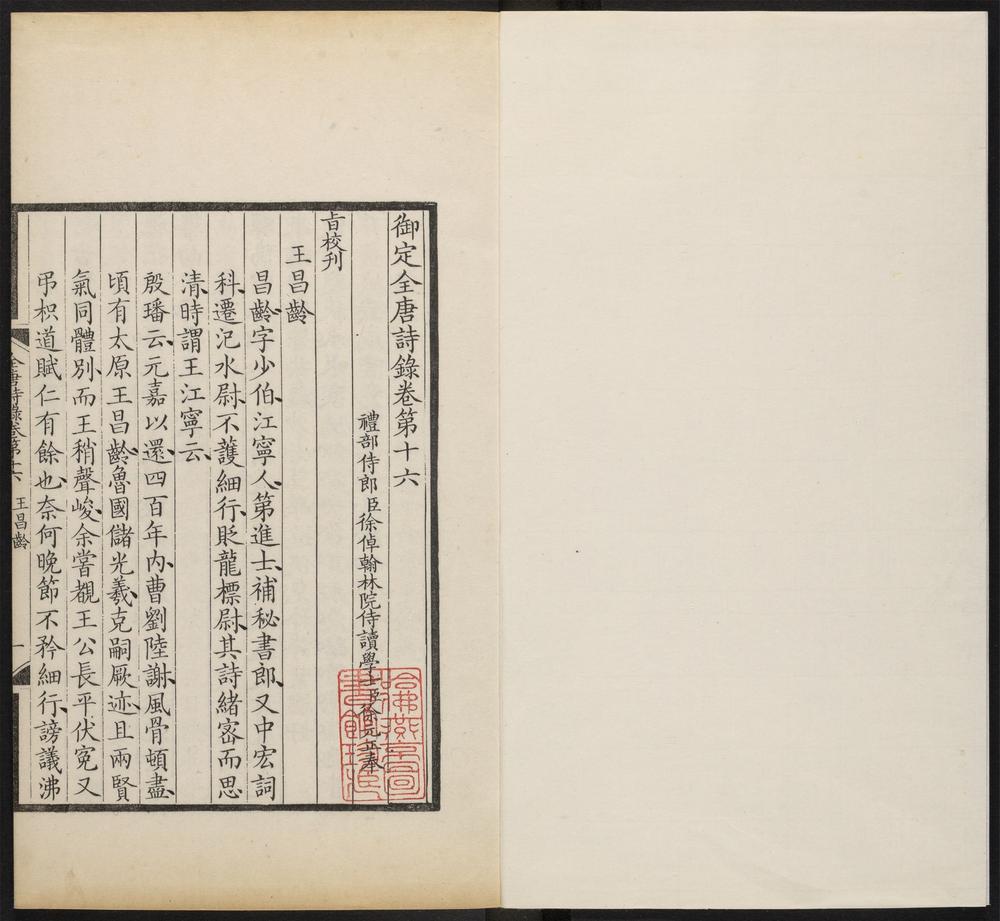 御定全唐詩錄卷第十六
禮部侍郎臣徐倬翰林院侍讀學士臣徐元正奉
旨校刊
王昌齡
昌齡字少伯江寧人第進士補秘書郎又中宏詞
科遷汜水尉不護細行貶龍標尉其詩緒宻而思
清時謂王江寧云
殷璠云元嘉以還四百年内曹劉陸謝風骨頓盡
頃有太原王昌齡魯國儲光羲克嗣厥迹且兩賢
氣同體別而王稍聲峻余嘗覩王公長平伏寃又
弔枳道賦仁有餘也奈何晚節不矜細行謗議沸
全唐詩錄卷第十六
王昌齡
一
哈佛燕京圖書館珍藏印